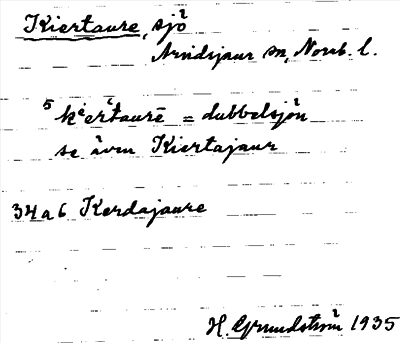 Kiertaure, sjö
Arvidsjaur sn, Norrb. l.
5 kiertaurē = dubbelsjön
se även Kiertajaur
34a6 Kerdajaure
H. Grundström 1935